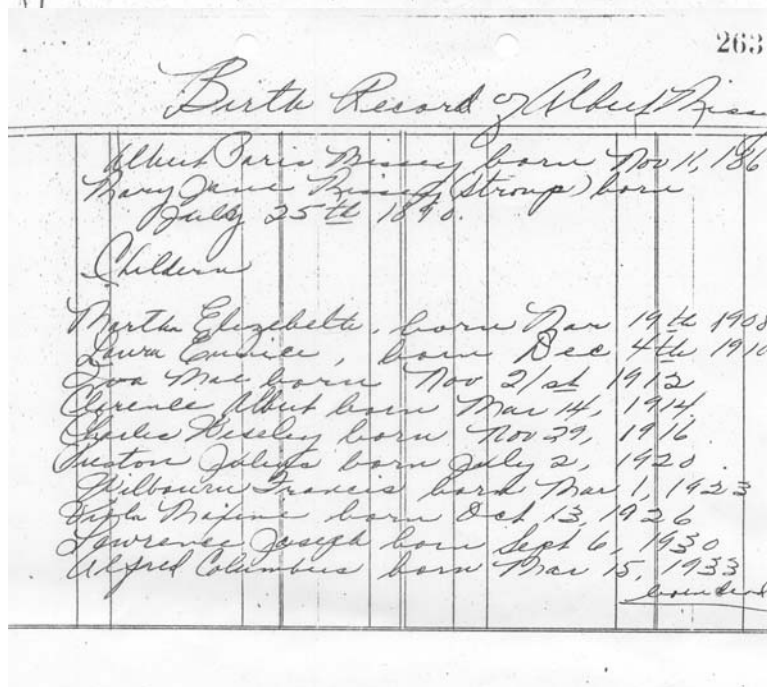 263
Birth Record of Albert Miss
Albert Paris Missey born Nov 11, 186
Mary Jane Missey (Stroup) born
July 25th 1890.
Childern
Martha Elizebeth, born Mar 19th 1908
Laura Eunice, born Dec 4th 1910
Iva Mae born Nov 21st 1912
Clorence Albert born Mar 14, 1914
Charles Weseley born Nov 29, 1916
Preston Julius born July 2, 1920
Wilbourn Francis born Mar 1, 1923
Viola Maxine born Oct 13, 1926
Lawrence Joseph born Sept 6, 1930
Alfred Columbus born Mar 15, 1933
born dead